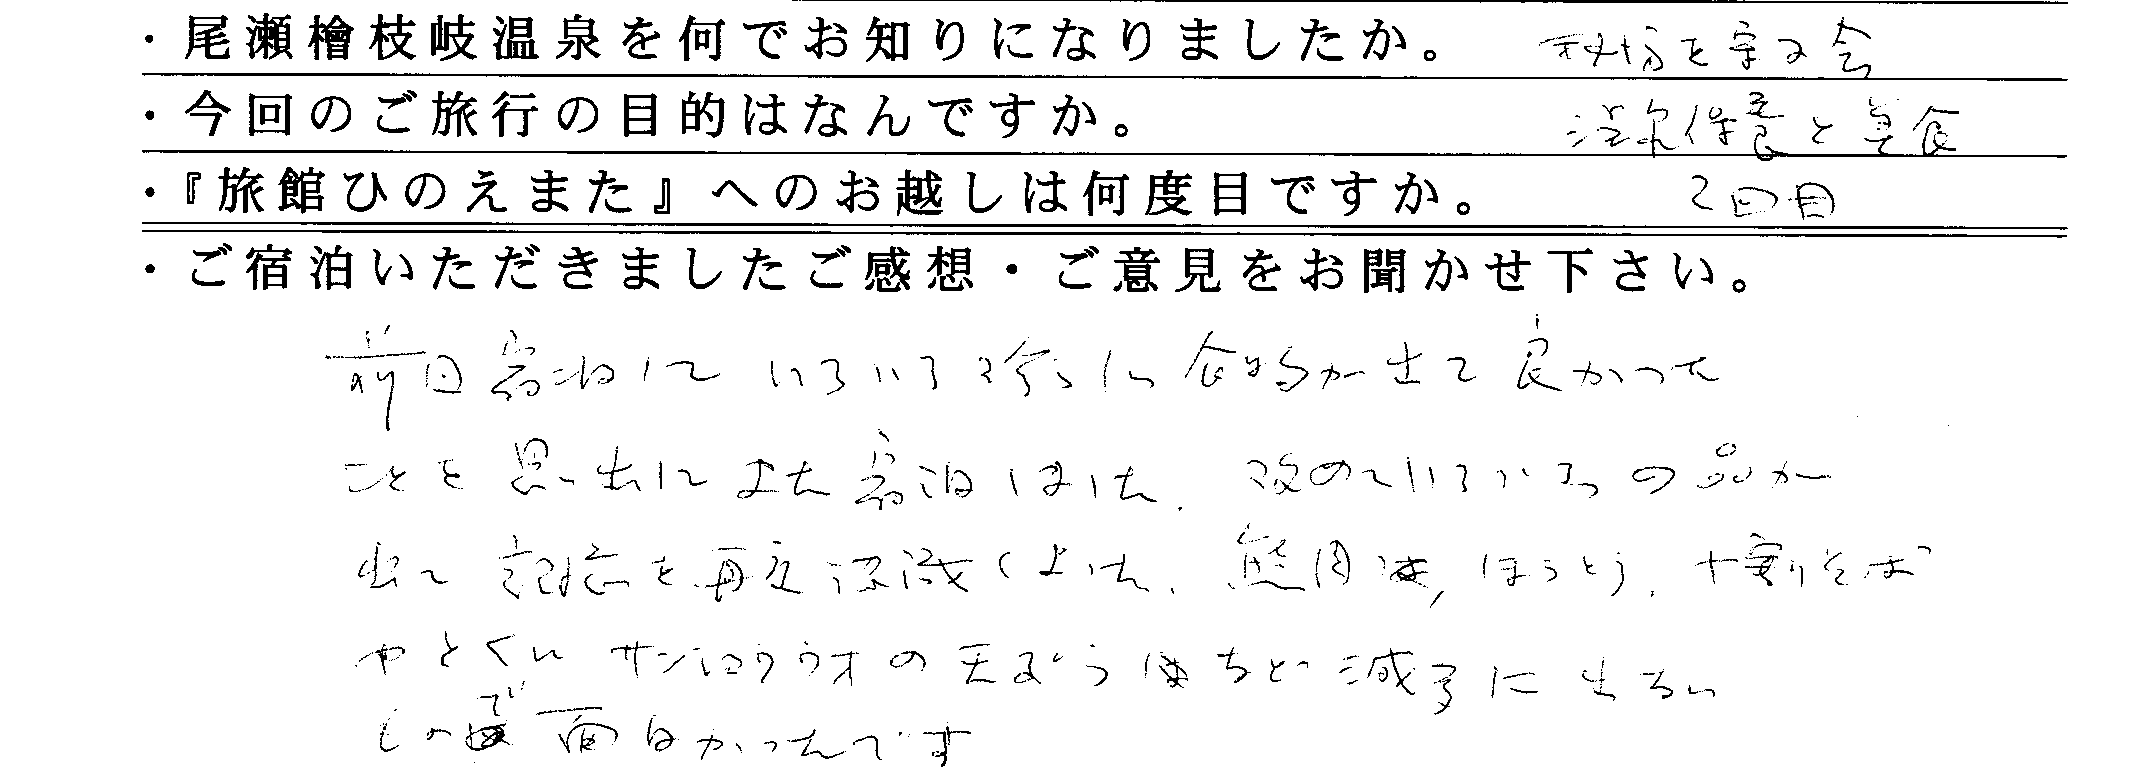 ・尾瀬檜枝岐温泉を何でお知りになりましたか。 秘湯を守る会
・今回のご旅行の目的はなんですか。 温泉保養と美食
・『旅館ひのえまた』へのお越しは何度目ですか。 2回目
・ご宿泊いただきましたご感想・ご意見をお聞かせ下さい。
前回宿泊していろいろ珍らしい食物が出て良かった
ことを思い出してまた宿泊しました。改めていろいろの品が
出て記憶を再度認識しました。熊肉、ほうとう、十割そば
やとくにサンショウウオの天ぷらは 滅多に出ない
もので面白かったです